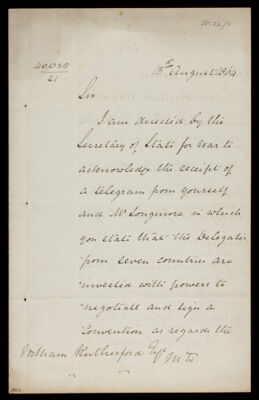 40058
21
13th August 1864
Sir
I am directed by the
Secretary of State for War to
acknowledge the receipt of
a telegram from yourself
and Mr Longmore in which
you state that the Delegates
from seven countries are
invested with powers to
negotiate and sign a
Convention as regards the
William Rutherford Esq